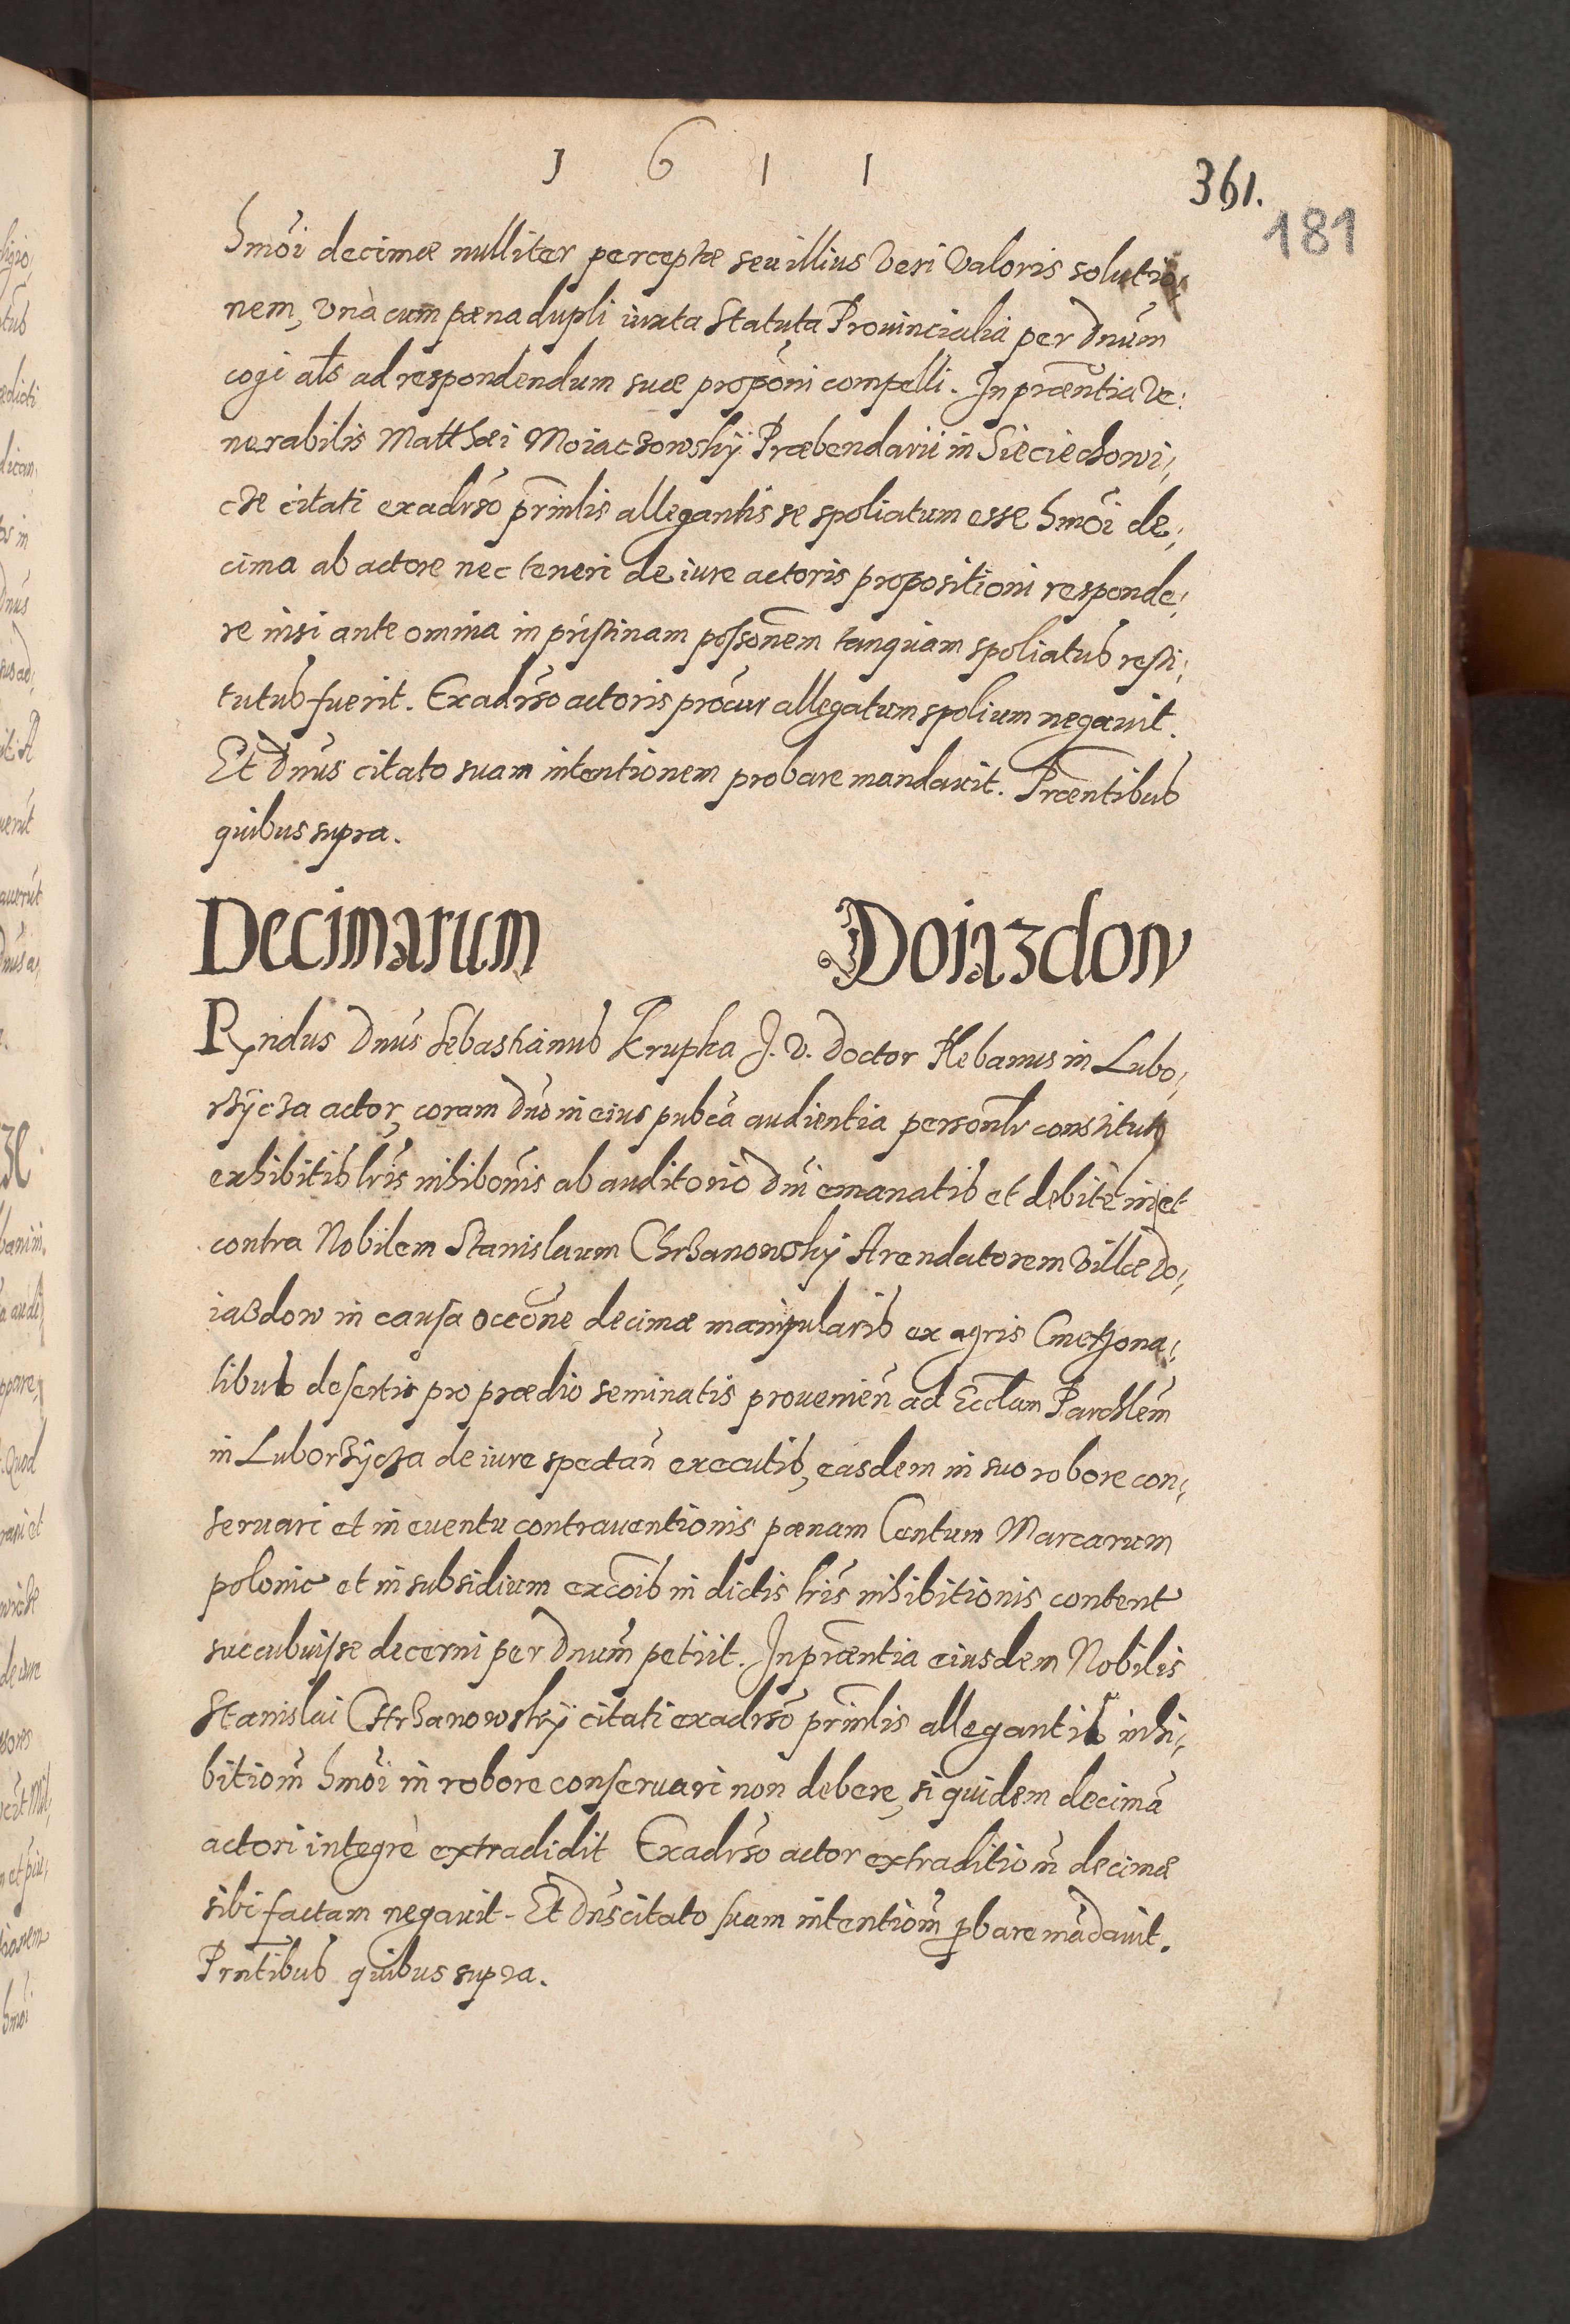 1 6 1 1
361.
181
hmoi decimæ nulliter perceptæ seu illius veri valoris solutio¦
nem, vnà cum pæna dupli iuxta Statuta Prouincialia per Dnum
cogi als ad respondendum suæ proponi compelli. In præntia Ve:
nerabilis Matthæi Moiaczowskÿ Præbendarii in Sieciechowi¦
cze citati exadrso prmlis allegantis se spoliatum esse hmoi de¦
cima ab actore nec teneri de iure actoris propositioni responde¦
re nisi ante omnia in pristinam possonem tanquam spoliatus resti¦
tutus fuerit. Exadrso actoris procur allegatum spolium negauit.
Et Dnus citato suam intentionem probare mandauit. Præntibus
quibus supra.
Decimarum Doiazdow
Rndus Dnus Sebastianus Krupka J. V. Doctor Plebanus in Lubo¦
rzÿcza actor, coram Dno in eius pubca audientia personlr constitutus
exhibitis lris inhibonis ab auditorio Dni emanatis et debitè in et
contra Nobilem Stanislaum Chrzanowskÿ Arendatorem villæ Do¦
iazdow in causa occone decimæ manipularis ex agris Cmethona¦
libus desertis pro prædio seminatis prouenien ad Eccliam Parochlem
in Luborzÿcza de iure spectan executis, easdem in suo robore con¦
seruari et in euentu contrauentionis pænam Centum Marcarum
polonic et in subsidium excois in dictis lris inhibitionis content
succubuisse decerni per Dnum petiit. In præntia eiusdem Nobilis
Stanislai Chrzanowskÿ citati exadrso prmlis allegantis inhi¦
bitiom hmoi in robore conseruari non debere, siquidem decima
actori integrè extradidit Exadrso actor extraditiom decimæ
sibi factam negauit. Et Dns citato suam intentiom pbare madauit.
Prntibus quibus supra.